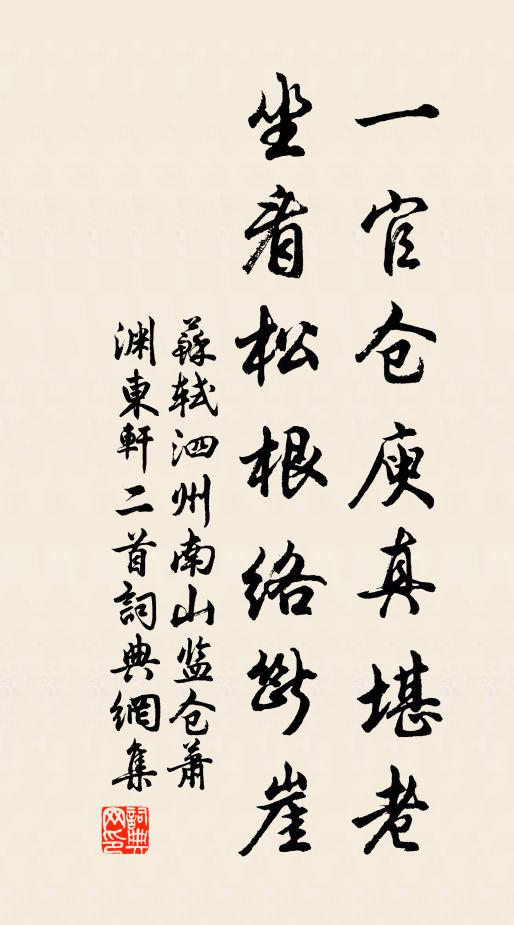 一官仓庾真堪老
坐看松根络斷崖
蘇轼泗州南山监仓蕭
渊東軒二首詞典網集
詞典网印